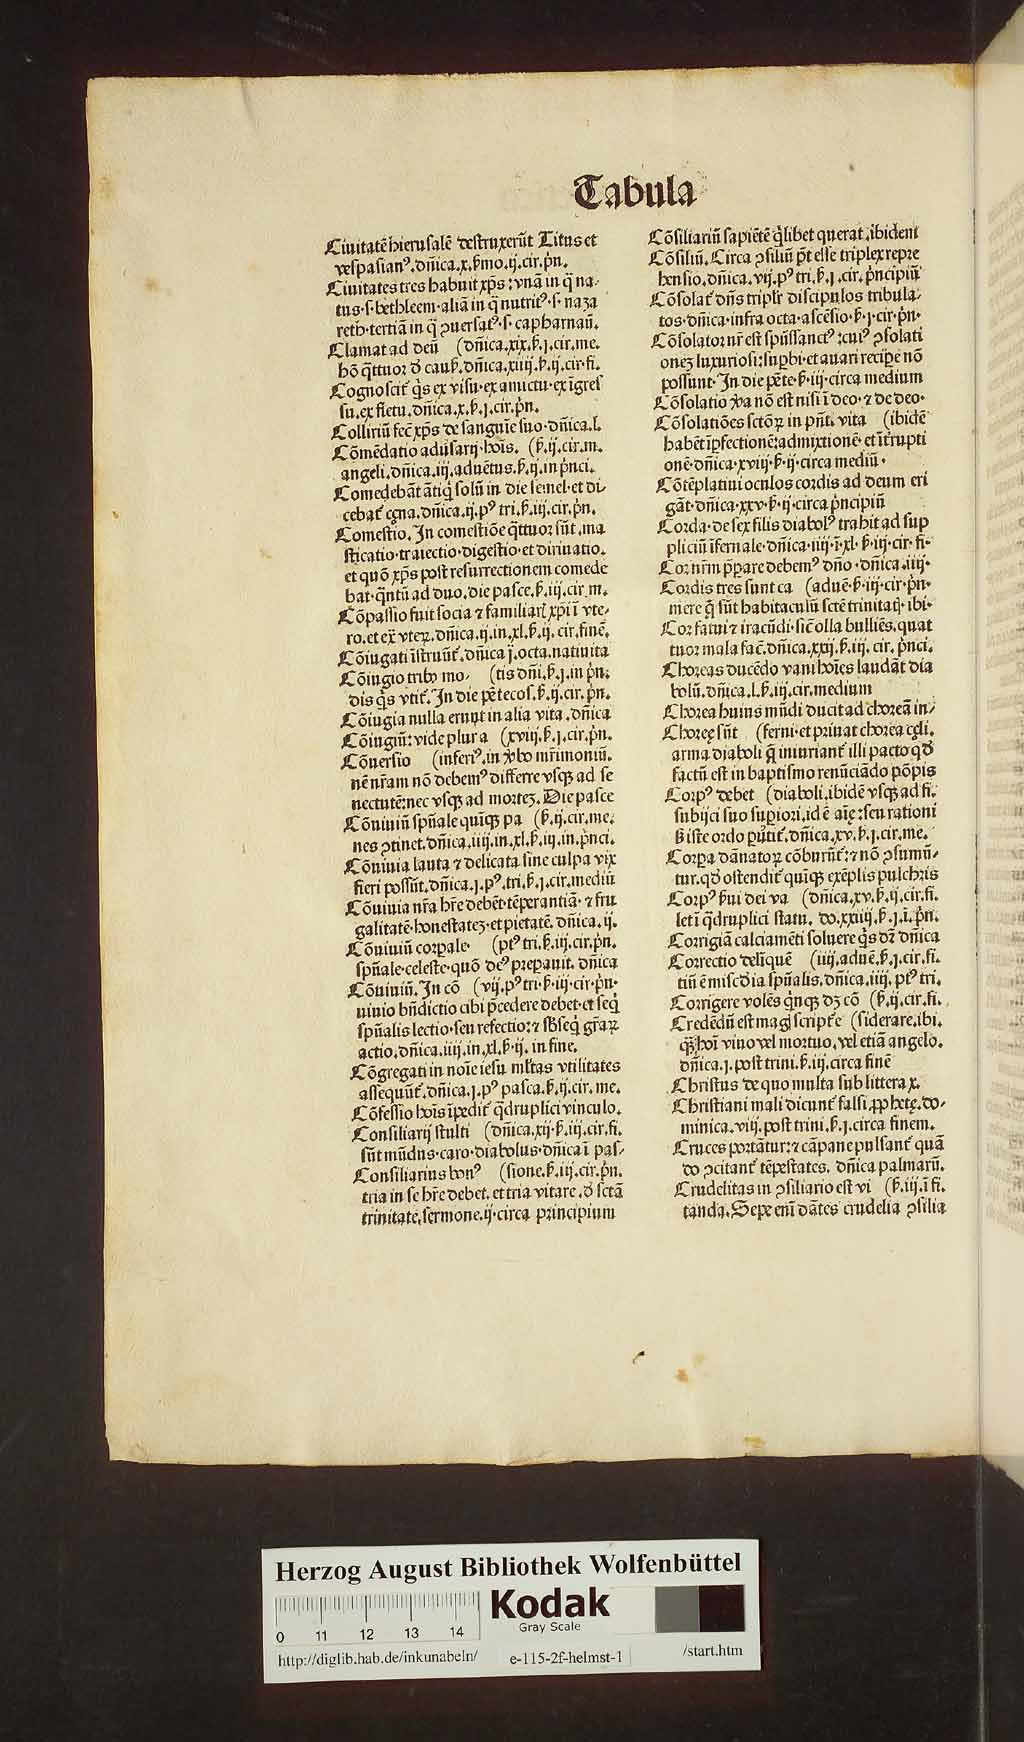 Tabula
Ciuitatē hierusalē destruxerūt Titus et
vespasianꝰ.dn̄ica.x.ẜmo.ij.cir.pn̄.
Ciuitates tres habuit xp̄s: vnā in q̄ na-
tus.s.bethleem.aliā in q̄ nutritꝰ.s.naza
reth.tertiā in q̄ ꝯuersatꝰ.s.capharnaū.
Clamat ad deū (dn̄ica.xix.ẜ.j.cir.me.
hō q̄ttuor ꝺ cauẜ.dn̄ica.xiiij.ẜ.ij.cir.fi.
Cognoscit̄ q̇s ex visu.ex amictu.ex īgres
su.ex fletu.dn̄ica.x.ẜ.j.cir.pn̄.
Colliriū fec̄ xp̄s de sanguīe suo.dn̄ica.l.
Cōmēdatio aduẜarij hoīs. (ẜ.ij.cir.m.
angeli.dn̄ica.iij.aduētus.ẜ.ij.in pn̄ci.
Comedebāt ātiq̇ solū in die semel.et di-
cebat̄ cęna.dn̄ica.ij.pꝰ tri.ẜ.iij.cir.pn̄.
Comestio. In comestiōe q̄ttuor sūt.ma
sticatio.traiectio.digestio.et diriuatio.
et quō xp̄s post resurrectionem comede
bat.q̄ntū ad duo.die pasce.ẜ.iij.cir.m.
Cōpassio fuit socia ⁊ familiarꝭ xp̄i ī vte-
ro.et ex̄ vteꝝ.dn̄ica.ij.in.xl.ẜ.ij.cir.finē.
Cōiugati īstruūt̄.dn̄ica j.octa.natiuita
Cōiugio tribꝰ mo- (tis dn̄i.ẜ.j.in pn̄.
dis q̇s vtit̄. In die pētecos.ẜ.ij.cir.pn̄.
Cōiugia nulla erunt in alia vita.dn̄ica
Cōiugiū: vide plura (xviij.ẜ.j.cir.pn̄.
Cōuersio (inferiꝰ.in v̄bo mr̄imoniū.
nē nr̄am nō debemꝰ differre vsqꝫ ad se
nectutē: nec vsqꝫ ad mortē. Die pasce
Cōuiuiū spūale quīqꝫ pa (ẜ.ij.cir.me.
nes ꝯtinet.dn̄ica.iiij.in.xl.ẜ.iij.in.pn̄ci.
Cōuiuia lauta ⁊ delicata sine culpa vix
fieri possūt.dn̄ica.j.pꝰ.tri.ẜ.j.cir.mediū
Cōuiuia nr̄a hr̄e debēt tēperantiā.⁊ fru
galitatē.honestatem.et pietatē.dn̄ica.ij.
Cōuiuiū corꝑale. (pꝰ tri.ẜ.iij.cir.pn̄.
spūale.celeste.quō deꝰ preparauit.dn̄ica
Cōuiuiū. In cō (vij.pꝰ tri.ẜ.iij.cir.pn̄.
uiuio bn̄dictio cibi p̄cedere debet.et seq̇
spūalis lectio.seu refectio: ⁊ sb̄seq̇ gr̄aꝝ
actio.dn̄ica.iiij.in.xl.ẜ.ij.in fine.
Cōgregati in noīe iesu mltas vtilitates
assequūt̄.dn̄ica.j.pꝰ pasca.ẜ.ij.cir.me.
Cōfessio hoīs īpedit̄ q̄druplici vinculo.
Consiliarij stulti (dn̄ica.xij.ẜ.iij.cir.fi.
sūt mūdus.caro.diabolus.dn̄ica ī pas-
Consiliarius bonꝰ (sione.ẜ.iij.cir.pn̄.
tria in se hr̄e debet.et tria vitare.ꝺ sctā
trinitate.sermone.ij.circa principium
Cōsiliariū sapiētē q̇libet querat.ibidem
Cōsiliū. Circa ꝯsiliū pōt esse triplex repre
hensio.dn̄ica.vij.pꝰ tri.ẜ.j.cir.pn̄cipiū
Cōsolat̄ dn̄s triplr̄ discipulos tribula-
tos.dn̄ica.infra octa.ascēsio.ẜ.j.cir.pn̄.
Cōsolator nr̄ est spūssanctꝰ: cuiꝰ ꝯsolati
onem luxuriosi: suꝑbi.et auari recipe nō
possunt. In die pēte.ẜ.iij.circa medium
Cōsolatio v̄a nō est nisi ī deo.⁊ de deo.
Cōsolatiōes sctōꝝ in pn̄t. vita (ibidē
habēt īꝑfectionē: admixtionē.et īt̄rupti
onē.dn̄ica.xviij.ẜ.ij.circa mediū.
Cōtēplatiui oculos cordis ad deum eri
gāt.dn̄ica.xxv.ẜ.ij.circa pn̄cipiū
Corda.de sex filis diabolꝰ trahit ad sup
pliciū īfernale.dn̄ica.iiij.ī.xl.ẜ.iij.cir.fi.
Cor nr̄m p̄parare debemꝰ dn̄o.dn̄ica.iiij.
Cordis tres sunt ca (aduē.ẜ.iij.cir.pn̄.
mere q̄ sūt habitaculū sctē trinitatꝭ.ibi.
Cor fatui ⁊ iracūdi.sic̄ olla bulliēs.quat
tuor mala fac̄.dn̄ica.xxij.ẜ.iij.cir.pn̄ci.
Choreas ducēdo vani hoīes laudāt dia
bolū.dn̄ica.l.ẜ.iij.cir.medium
Chorea huius mūdi ducit ad choreā in-
Choreę sūt (ferni.et priuat chorea cęli.
arma diaboli q̄ iniuriant̄ illi pacto qꝺ
factū est in baptismo renūciādo pōpis
Corpꝰ debet (diaboli.ibidē vsqꝫ ad fi.
subijci suo superiori.id ē aīę: seu rationi
ẜ iste ordo ꝑuertit̄.dn̄ica.xv.ẜ.j.cir.me.
Corꝑa dānatoꝝ cōburūt̄: ⁊ nō ꝯsumū-
tur.qꝺ ostendit̄ quīqꝫ exēplis pulchris
Corpꝰ ẜui dei va (dn̄ica.xv.ẜ.ij.cir.fi.
let ī q̄druplici statu. do.xxiiij.ẜ.j.ī.pn̄.
Corrigiā calciamēti soluere q̇s dꝛ̄ dn̄ica
Correctio delīquē (iiij.aduē.ẜ.j.cir.fi.
tiū ē misc̄dia spūalis.dn̄ica.iiij.pꝰ tri.
Corrigere volēs q̇nqꝫ dꝫ cō (ẜ.ij.cir.fi.
Credēdū est magꝭ scriptꝭe (siderare.ibi.
qꝫ hoī viuo vel mortuo.vel etiā angelo.
dn̄ica.j.post trini.ẜ.iij.circa finē
Christus de quo multa sub littera x.
Christiani mali dicunt̄ falsi ꝓphetę.do-
minica.viij.post trini.ẜ.j.circa finem.
Cruces portātur: ⁊ cāpane pulsant̄ quā
do ꝯcitant̄ tēpestates. dn̄ica palmarū.
Crudelitas in ꝯsiliario est vi (ẜ.iij.ī fi.
tanda. Sepe em̄ dātes crudelia ꝯsilia
Herzog August Bibliothek Wolfenbüttel
0 11 12 13 14
Kodak
Gray Scale
http://diglib.hab.de/inkunabeln/ e-115-2f-helmst-1 /start.htm